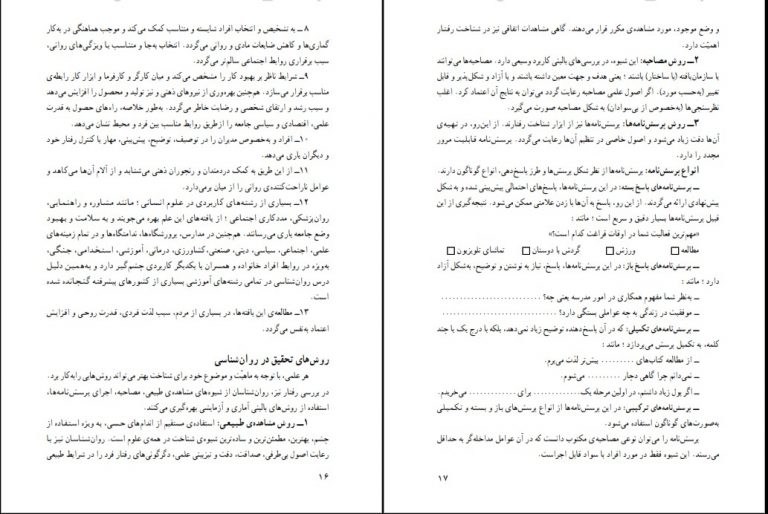 ۸ ــ به تشخیص و انتخاب افراد شایسته و متناسب کمک می‌کند و موجب هماهنگی در به‌کار
گماری‌ها و کاهش ضایعات مادی و روانی می‌گردد. انتخاب به‌جا و متناسب با ویژگی‌های روانی،
سبب برقراری روابط اجتماعی سالم‌تر می‌گردد.
۹ــ شرایط ناظر بر بهبود کار را مشخص می‌کند و میان کارگر و کارفرما و ابزار کار رابطه‌ی
مناسب برقرار می‌سازد. هم‌چنین بهره‌وری از نیروهای ذهنی و نیز تولید و محصول را افزایش می‌دهد
و سبب رشد و ارتقای شخصی و رضایت خاطر می‌گردد. به‌طور خلاصه، راه‌های حصول به قدرت
علمی، اقتصادی و سیاسی جامعه را ازطریق روابط مناسب بین فرد و محیط نشان می‌دهد.
۱۰ــ افراد و به‌خصوص مدیران را در توصیف، توضیح، پیش‌بینی، مهار یا کنترل رفتار خود
و دیگران یاری می‌دهد.
۱۱ــ از این طریق به کمک دردمندان و رنجوران ذهنی می‌شتابد و از آلام آن‌ها می‌کاهد و
عوامل ناراحت‌کننده‌ی روانی را از میان برمی‌دارد.
۱۲ــ بسیاری از رشته‌های کاربردی در علوم انسانی ؛ مانند مشاوره و راهنمایی،
روان‌پزشکی، مددکاری اجتماعی ؛ از یافته‌های این علم بهره می‌جویند و به سلامت و بهبود
وضع جامعه یاری می‌رسانند. هم‌چنین در مدارس، پرورشگاه‌ها، ندامتگاه‌ها و در تمام زمینه‌های
علمی، اجتماعی، سیاسی، دینی، صنعتی،کشاورزی، درمانی، آموزشی، استخدامی، جنگی،
به‌ویژه در روابط افراد خانواده و همسران با یکدیگر کاربردی چشم‌گیر دارد و به‌همین دلیل
درس روان‌شناسی در تمامی رشته‌های آموزشی بسیاری از کشورهای پیشرفته گنجانده شده
است.
۱۳ــ مطالعه‌ی این یافته‌ها، در بسیاری از مردم، سبب لذت فردی، قدرت روحی و افزایش
اعتماد به‌نفس می‌گردد.
روش‌های تحقیق در روان‌شناسی
هر علمی، با توجه به ماهیّت و موضوع خود برای شناخت بهتر می‌تواند روش‌هایی رابه‌کار برد.
در بررسی رفتار نیز، روان‌شناسان از شیوه‌های مشاهده‌ی طبیعی، مصاحبه، اجرای پرسش‌نامه‌ها،
استفاده از روش‌های بالینی آماری و آزمایشی بهره‌گیری می‌کنند.
۱ــ روش مشاهده‌ی طبیعی: استفاده‌ی مستقیم از اندام‌های حسی، به ویژه استفاده از
چشم، بهترین، مطمئن‌ترین و ساده‌ترین شیوه‌ی شناخت در همه‌ی علوم است. روان‌شناسان نیز با
رعایت اصول بی‌طرفی، صداقت، دقت و تیزبینی علمی، دگرگونی‌های رفتار فرد را در شرایط طبیعی
۱۶
و وضع موجود، مورد مشاهده‌ی مکرر قرار می‌دهند. گاهی مشاهدات اتفاقی نیز در شناخت رفتار
اهمیّت دارد.
۲ــ روش مصاحبه: این شیوه، در بررسی‌های بالینی کاربرد وسیعی دارد. مصاحبه‌ها می‌توانند
یا سازمان‌یافته (یا ساختار) باشند ؛ یعنی هدف و جهت معین داشته باشند و یا آزاد و شکل‌پذیر و قابل
تغییر (به‌حسب مورد). اگر اصول علمی مصاحبه رعایت گردد می‌توان به نتایج آن اعتماد کرد. اغلب
نظرسنجی‌ها (به‌خصوص از بی‌سوادان) به شکل مصاحبه صورت می‌گیرد.
۳ــ روش پرسش‌نامه‌ها: پرسش‌نامه‌ها نیز از ابزار شناخت رفتارند. از این‌رو، در تهیه‌ی
آن‌ها دقت زیاد می‌شود و اصول خاصی در تنظیم آن‌ها رعایت می‌گردد. پرسش‌نامه قابلیت مرور
مجدد را دارد.
انواع پرسش‌نامه: پرسش‌نامه‌ها از نظر شکل پرسش‌ها و طرز پاسخ‌دهی، انواع گوناگون دارند.
ــ پرسش‌نامه‌های پاسخ بسته: در این پرسش‌نامه‌ها، پاسخ‌های احتمالی پیش‌بینی شده و به شکل
پیش‌نهادی ارائه می‌گردند. از این رو، پاسخ به آن‌ها با زدن علامتی ممکن می‌شود. نتیجه‌گیری از این
قبیل پرسش‌نامه‌ها بسیار دقیق و سریع است ؛ مانند :
«مهم‌ترین فعالیت شما در اوقات فراغت کدام است؟»
مطالعه □ ورزش □ گردش با دوستان □ تماشای تلویزیون □
ــ پرسش‌نامه‌های پاسخ باز: در این پرسش‌نامه‌ها، پاسخ، نیاز به نوشتن و توضیح، به‌شکل آزاد
دارد ؛ مانند :
ــ به‌نظر شما مفهوم همکاری در امور مدرسه یعنی چه؟ ....................
ــ موفقیت در زندگی به چه عواملی بستگی دارد؟ ....................
ــ پرسش‌نامه‌های تکمیلی: که در آن پاسخ‌دهنده، توضیح زیاد نمی‌دهد، بلکه با درج یک یا چند
کلمه، به تکمیل پرسش می‌پردازد ؛ مانند :
ــ از مطالعه کتاب‌های ......... بیش‌تر لذت می‌برم.
ــ نمی‌دانم چرا گاهی دچار ......... می‌شوم.
ــ اگر پول زیاد داشتم، در اولین مرحله یک ......... برای ......... می‌خریدم.
ــ پرسش‌نامه‌های ترکیبی: در این پرسش‌نامه‌ها از انواع پرسش‌های باز و بسته و تکمیلی
به‌صورت‌های گوناگون استفاده می‌شود.
پرسش‌نامه را می‌توان نوعی مصاحبه‌ی مکتوب دانست که در آن عوامل مداخله‌گر به حداقل
می‌رسند. این شیوه فقط در مورد افراد با سواد قابل اجراست.
۱۷